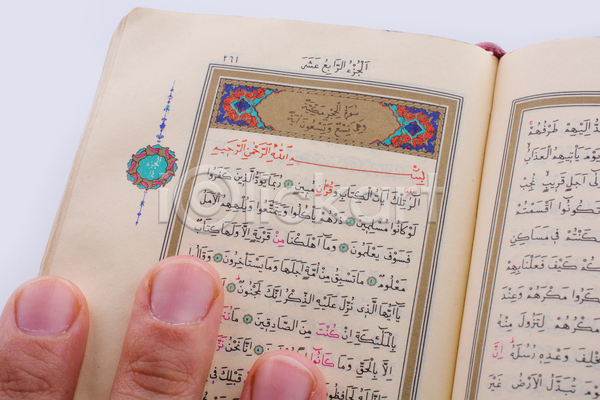 ٢٦١
اَلْجُزْءُ الرَّابِعُ عَشَرَ
سُورَةُ الْحِجْرِ مَكِّيَّةٌ
وَهِيَ تِسْعٌ وَتِسْعُونَ آيَةً
بِسْمِ اللّٰهِ الرَّحْمٰنِ الرَّحِيمِ
الٓرٰ تِلْكَ اٰيَاتُ الْكِتَابِ وَقُرْاٰنٍ مُبِينٍ رُبَمَا يَوَدُّ الَّذِينَ كَفَرُوا
لَوْ كَانُوا مُسْلِمِينَ ذَرْهُمْ يَأْكُلُوا وَيَتَمَتَّعُوا وَيُلْهِهِمُ الْاَمَلُ
فَسَوْفَ يَعْلَمُونَ وَمَٓا اَهْلَكْنَا مِنْ قَرْيَةٍ اِلَّا وَلَهَا كِتَابٌ
مَعْلُومٌ مَا تَسْبِقُ مِنْ اُمَّةٍ اَجَلَهَا وَمَا يَسْتَأْخِرُونَ وَقَالُوا
يَٓا اَيُّهَا الَّذِي نُزِّلَ عَلَيْهِ الذِّكْرُ اِنَّكَ لَمَجْنُونٌ
بِالْمَلٰٓئِكَةِ اِنْ كُنْتَ مِنَ الصَّادِقِينَ مَا
اِلَّا بِالْحَقِّ وَمَا كَانُٓوا اِنَّا نَحْنُ
قَبْلِكَ
اِلَيْهِمْ طَرْفُهُمْ
يَوْمَ يَأْتِيهِمُ الْعَذَابُ
اِلٰٓى اَجَلٍ قَرِيبٍ نُجِبْ
تَكُونُٓوا اَقْسَمْتُمْ
سَكَنْتُمْ فِي مَسَاكِنِ
كَيْفَ فَعَلْنَا بِهِمْ
مَكَرُوا مَكْرَهُمْ وَعِنْدَ
مَكْرُهُمْ لِتَزُولَ مِنْهُ
مُخْلِفَ وَعْدِهِ رُسُلَهُ اِنَّ
تُبَدَّلُ الْاَرْضُ غَيْرَ